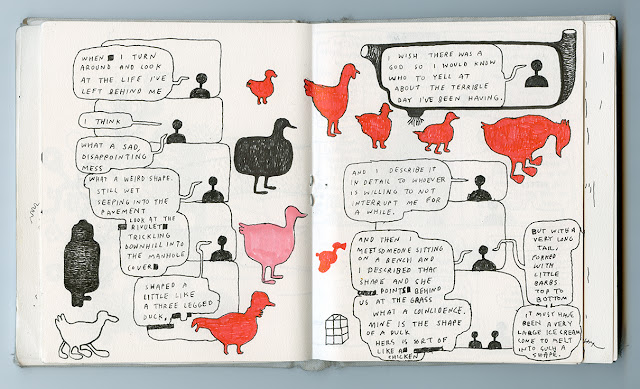 WHEN I TURN
AROUND AND LOOK
AT THE LIFE I'VE
LEFT BEHIND ME
I THINK
WHAT A SAD,
DISAPPOINTING
MESS
WHAT A WEIRD SHAPE.
STILL WET
SEEPING INTO THE
PAVEMENT
LOOK AT THE
RIVULET
TRICKLING
DOWNHILL INTO
THE MANHOLE
COVER
SHAPED A
LITTLE LIKE
A THREE LEGGED
DUCK,
I WISH THERE WAS A
GOD SO I WOULD KNOW
WHO TO YELL AT
ABOUT THE TERRIBLE
DAY I'VE BEEN HAVING.
AND I DESCRIBE IT
IN DETAIL TO WHOEVER
IS WILLING TO NOT
INTERRUPT ME FOR
A WHILE.
AND THEN I
MEET SOMEONE SITTING
ON A BENCH AND
I DESCRIBED THAT
SHAPE AND SHE
POINTS BEHIND
US AT THE GRASS
WHAT A COINCIDENCE.
MINE IS THE SHAPE
OF A DUCK
HERS IS SORT OF
LIKE A
CHICKEN
BUT WITH A
VERY LONG
TAIL,
FORMED
WITH
LITTLE
BARBS
TOP TO
BOTTOM
IT MUST HAVE
BEEN A VERY
LARGE ICE CREAM
CONE TO MELT
INTO SUCH A
SHAPE.